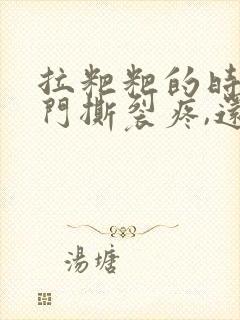 拉粑粑的時
門撕裂疼,還
湯塘